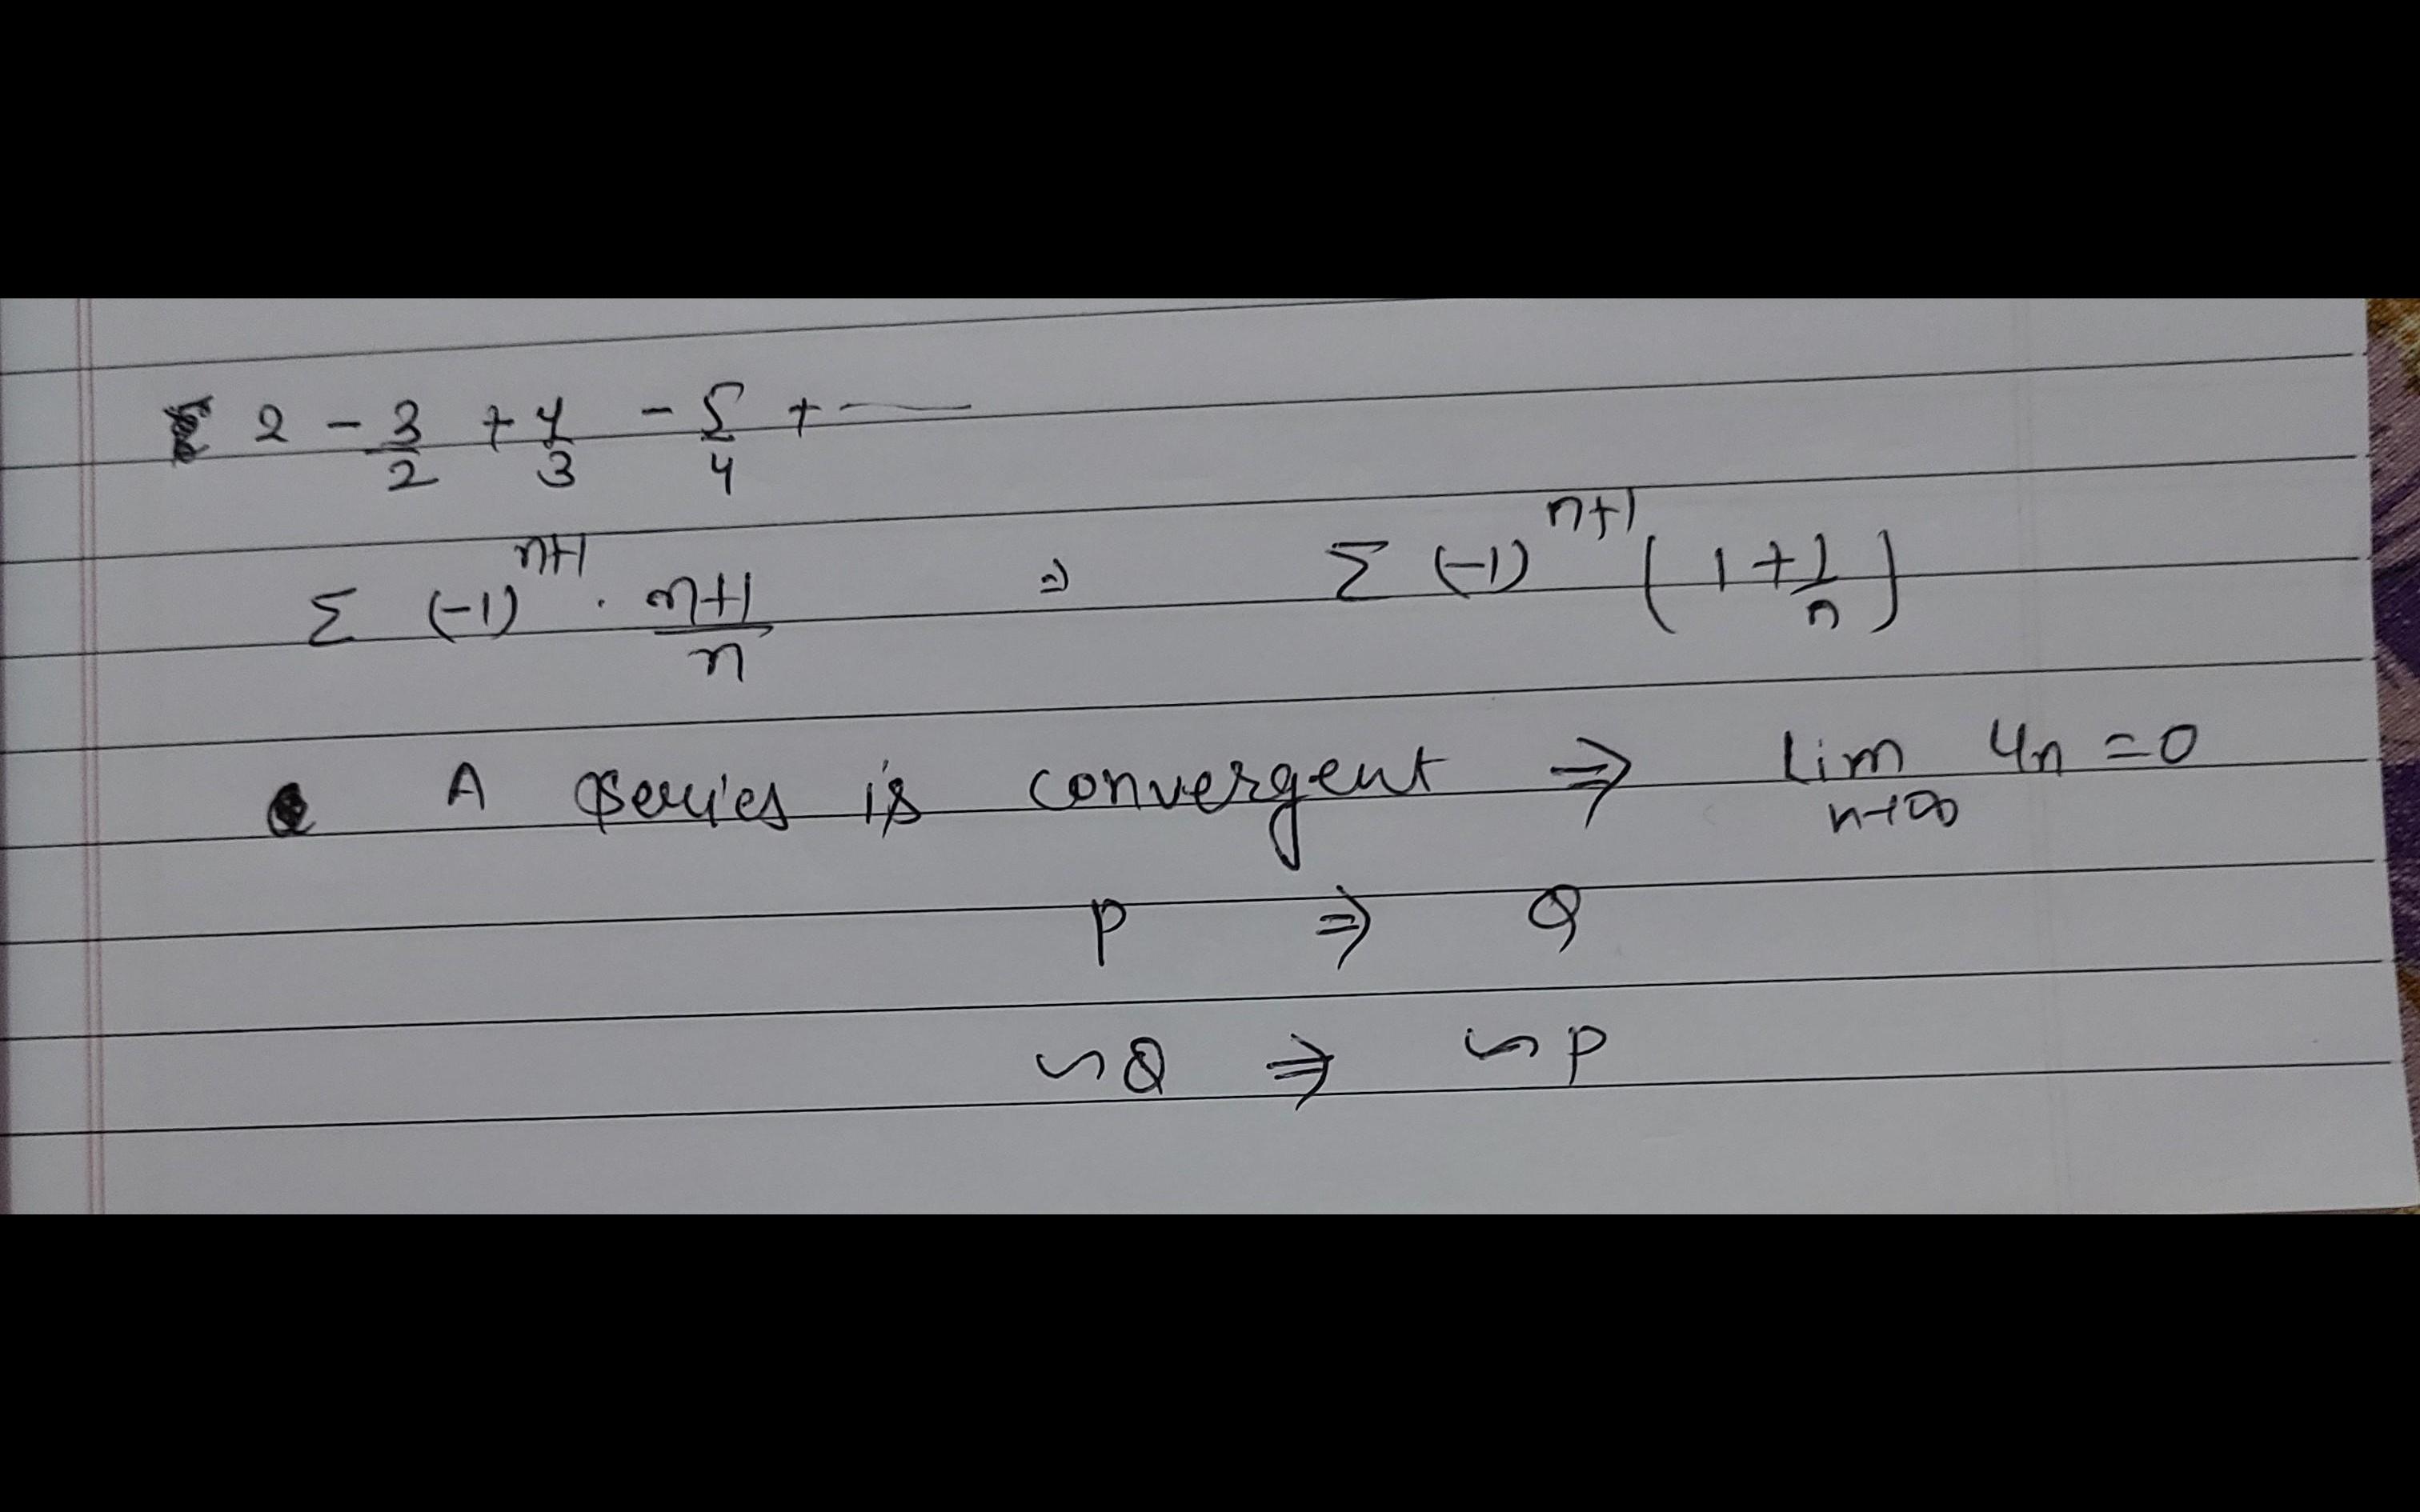 2 - 3/2 + 4/3 - 5/4 + —
Σ (-1)^{n+1} · (n+1)/n ⇒ Σ (-1)^{n+1} (1 + 1/n)
A series is convergent ⇒ lim_{n→∞} Un = 0
P ⇒ Q
~Q ⇒ ~P